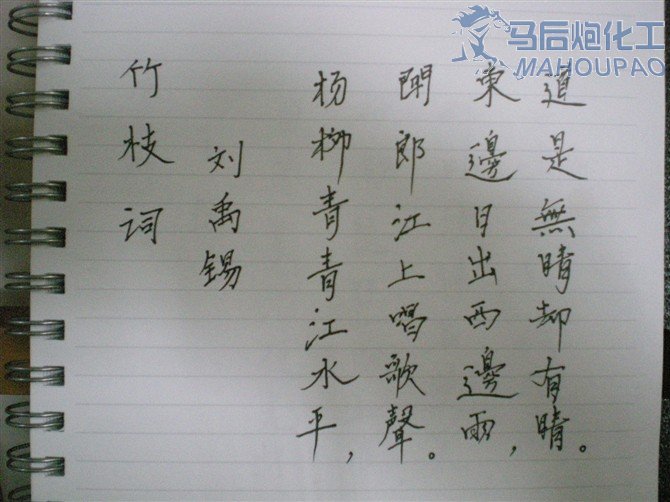 竹枝词
刘禹锡
杨柳青青江水平，
闻郎江上唱歌聲。
東邊日出西邊雨，
道是無晴却有晴。
马后炮化工
MAHOUPAO